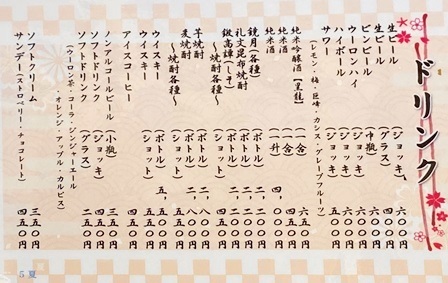 ドリンク
生ビール (ジョッキ) 六〇〇円
生ビール (グラス)
ビンビール (中瓶)
ウーロンハイ 五〇〇円
ハイボール 五〇〇円
サワー 五〇〇円
(レモン・梅・巨峰・カシス・グレープフルーツ)
純米吟醸酒【星龍】 (一合) 六五〇円
純米酒 (一合) 五〇〇円
純米酒 (一升) 四、〇〇〇円
鏡月(各種) (ボトル)
礼文昆布焼酎 (ボトル)
鍛高譚(しそ) (ボトル)
〜焼酎各種〜 (ショット)
芋焼酎 (ボトル) 二、八〇〇円
麦焼酎 (ボトル)
〜焼酎各種〜 (ショット)
ウイスキー (ボトル)
ウイスキー (ショット)
アイスコーヒー
ノンアルコールビール (小瓶)
ソフトドリンク (ジョッキ) 三五〇円
ソフトドリンク (グラス) 二五〇円
(ウーロン茶・コーラ・ジンジャーエール
オレンジ・アップル・カルピス)
ソフトクリーム 三五〇円
サンデー(ストロベリー・チョコレート) 四五〇円
5夏